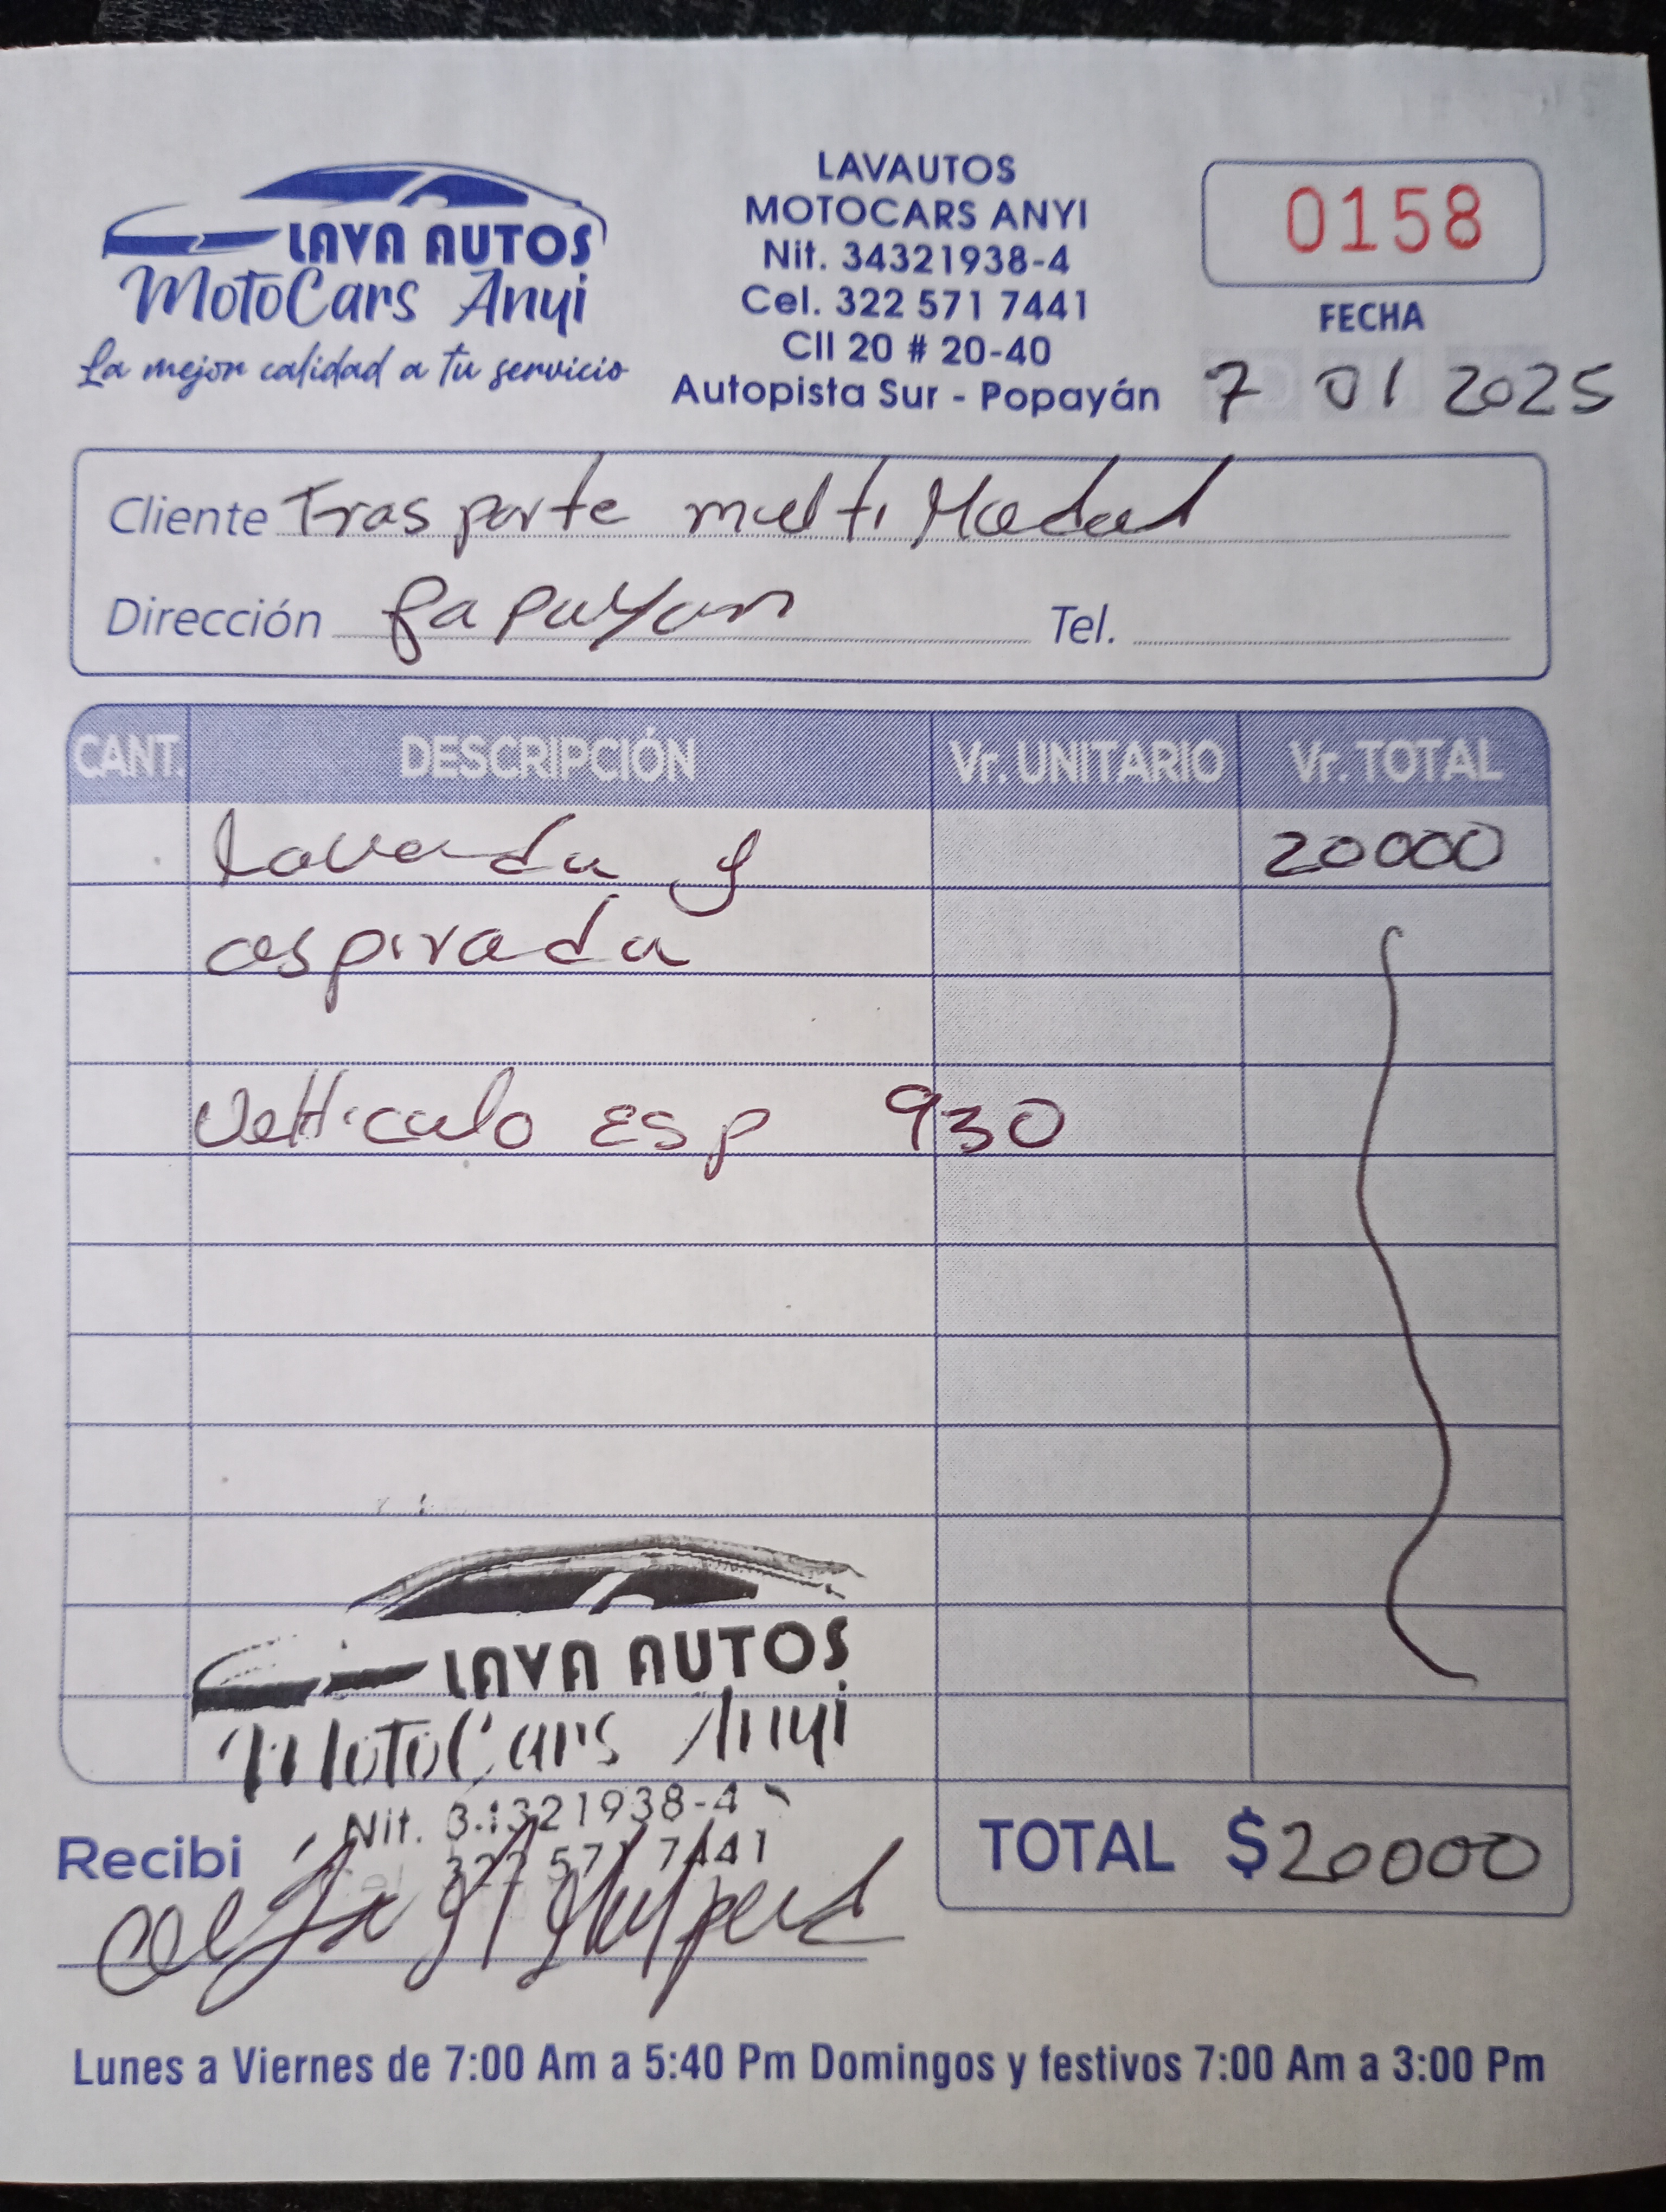 LAVA AUTOS
MotoCars Anyi
La mejor calidad a tu servicio
LAVAUTOS
MOTOCARS ANYI
Nit. 34321938-4
Cel. 322 571 7441
Cll 20 # 20-40
Autopista Sur - Popayán
0158
FECHA
7 01 2025
Cliente Trasporte multi Modal
Dirección Popayan Tel.
CANT. DESCRIPCIÓN Vr. UNITARIO Vr. TOTAL
lavada y 20000
aspirada
Vehiculo Esp 930
LAVA AUTOS
MotoCars Anyi
Nit. 34321938-4
Cel 322 571 7441
Recibi
TOTAL $ 20000
Lunes a Viernes de 7:00 Am a 5:40 Pm Domingos y festivos 7:00 Am a 3:00 Pm